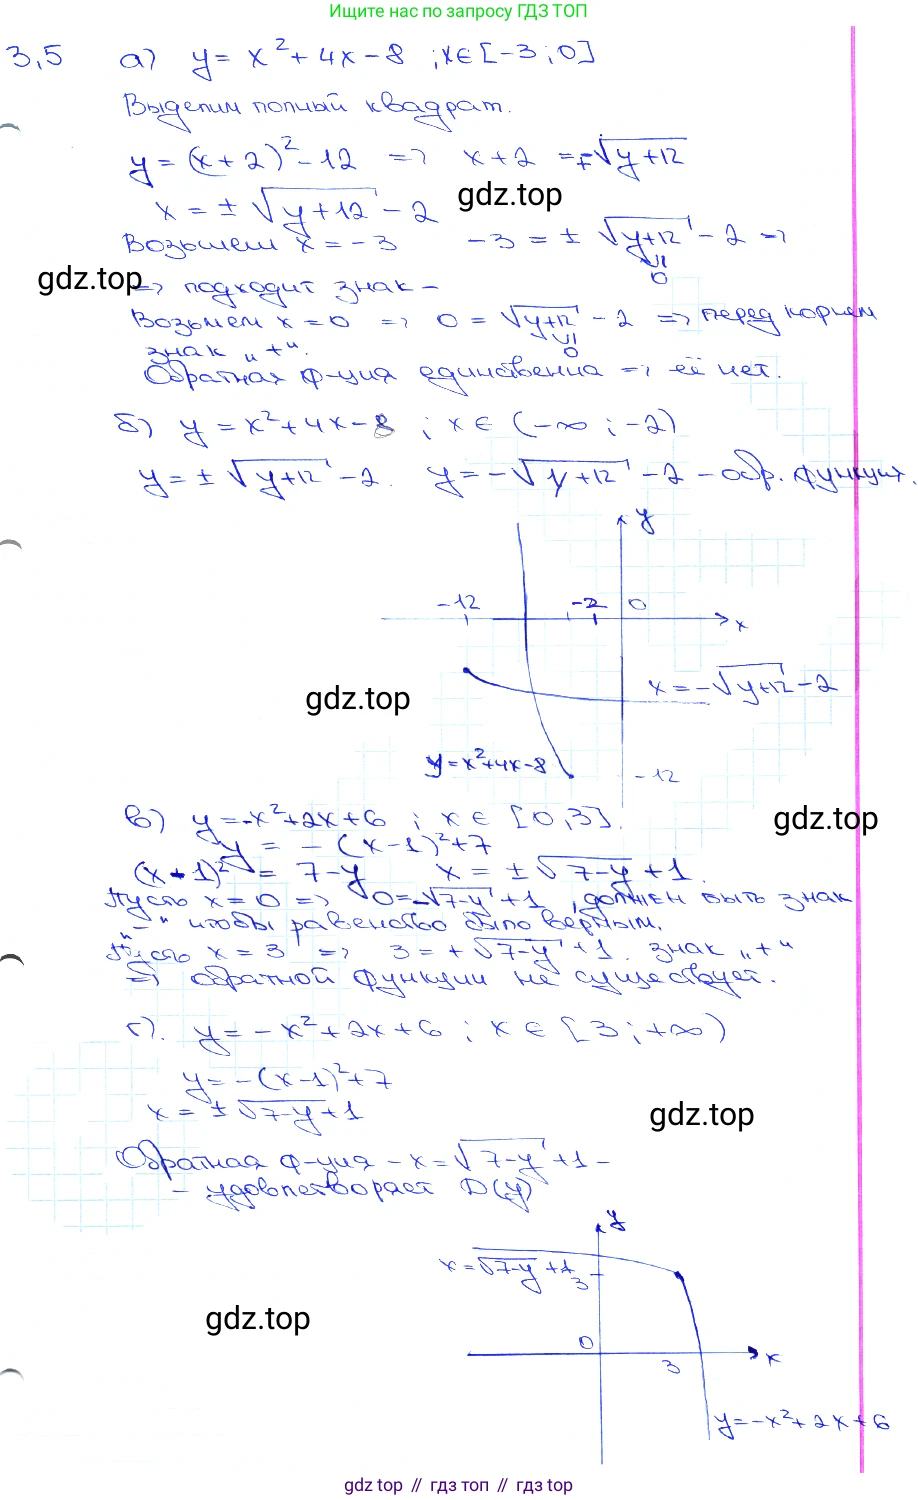 Ищите нас по запросу ГДЗ ТОП
3,5 а) y = x² + 4x - 8 ; x ∈ [-3; 0]
Выделим полный квадрат.
y = (x+2)² - 12 => x + 2 = ±√(y+12)
gdz.top
x = ± √(y+12) - 2
Возьмем x = -3 -3 = ± √(y+12) - 2 =>
0
gdz.top
=> подходит знак -
Возьмем x = 0 => 0 = √(y+12) - 2 => перед корнем
0
знак „+“.
Обратная ф-ция единственна => её нет.
б) y = x² + 4x - 8 ; x ∈ (-∞; -2)
y = ± √(y+12) - 2. y = -√(y+12) - 2 - обр. функция.
y
-12 -2 0
x
x = -√(y+12) - 2
gdz.top
y = x²+4x-8
-12
в) y = -x² + 2x + 6 ; x ∈ [0, 3].
gdz.top
y = -(x-1)² + 7
(x-1)² = 7-y x = ± √(7-y) + 1.
Пусть x = 0 => 0 = -√(7-y) + 1, должен быть знак
„-“ чтобы равенство было верным.
Пусть x = 3 => 3 = + √(7-y) + 1. знак „+“
=> обратной функции не существует.
г). y = -x² + 2x + 6 ; x ∈ [3; +∞)
y = -(x-1)² + 7
x = ± √(7-y) + 1
gdz.top
Обратная ф-ция - x = √(7-y) + 1 -
- удовлетворяет D(y)
y
x = √(7-y) + 1
3
gdz.top
0
3
x
y = -x² + 2x + 6
gdz top // гдз top // гдз top